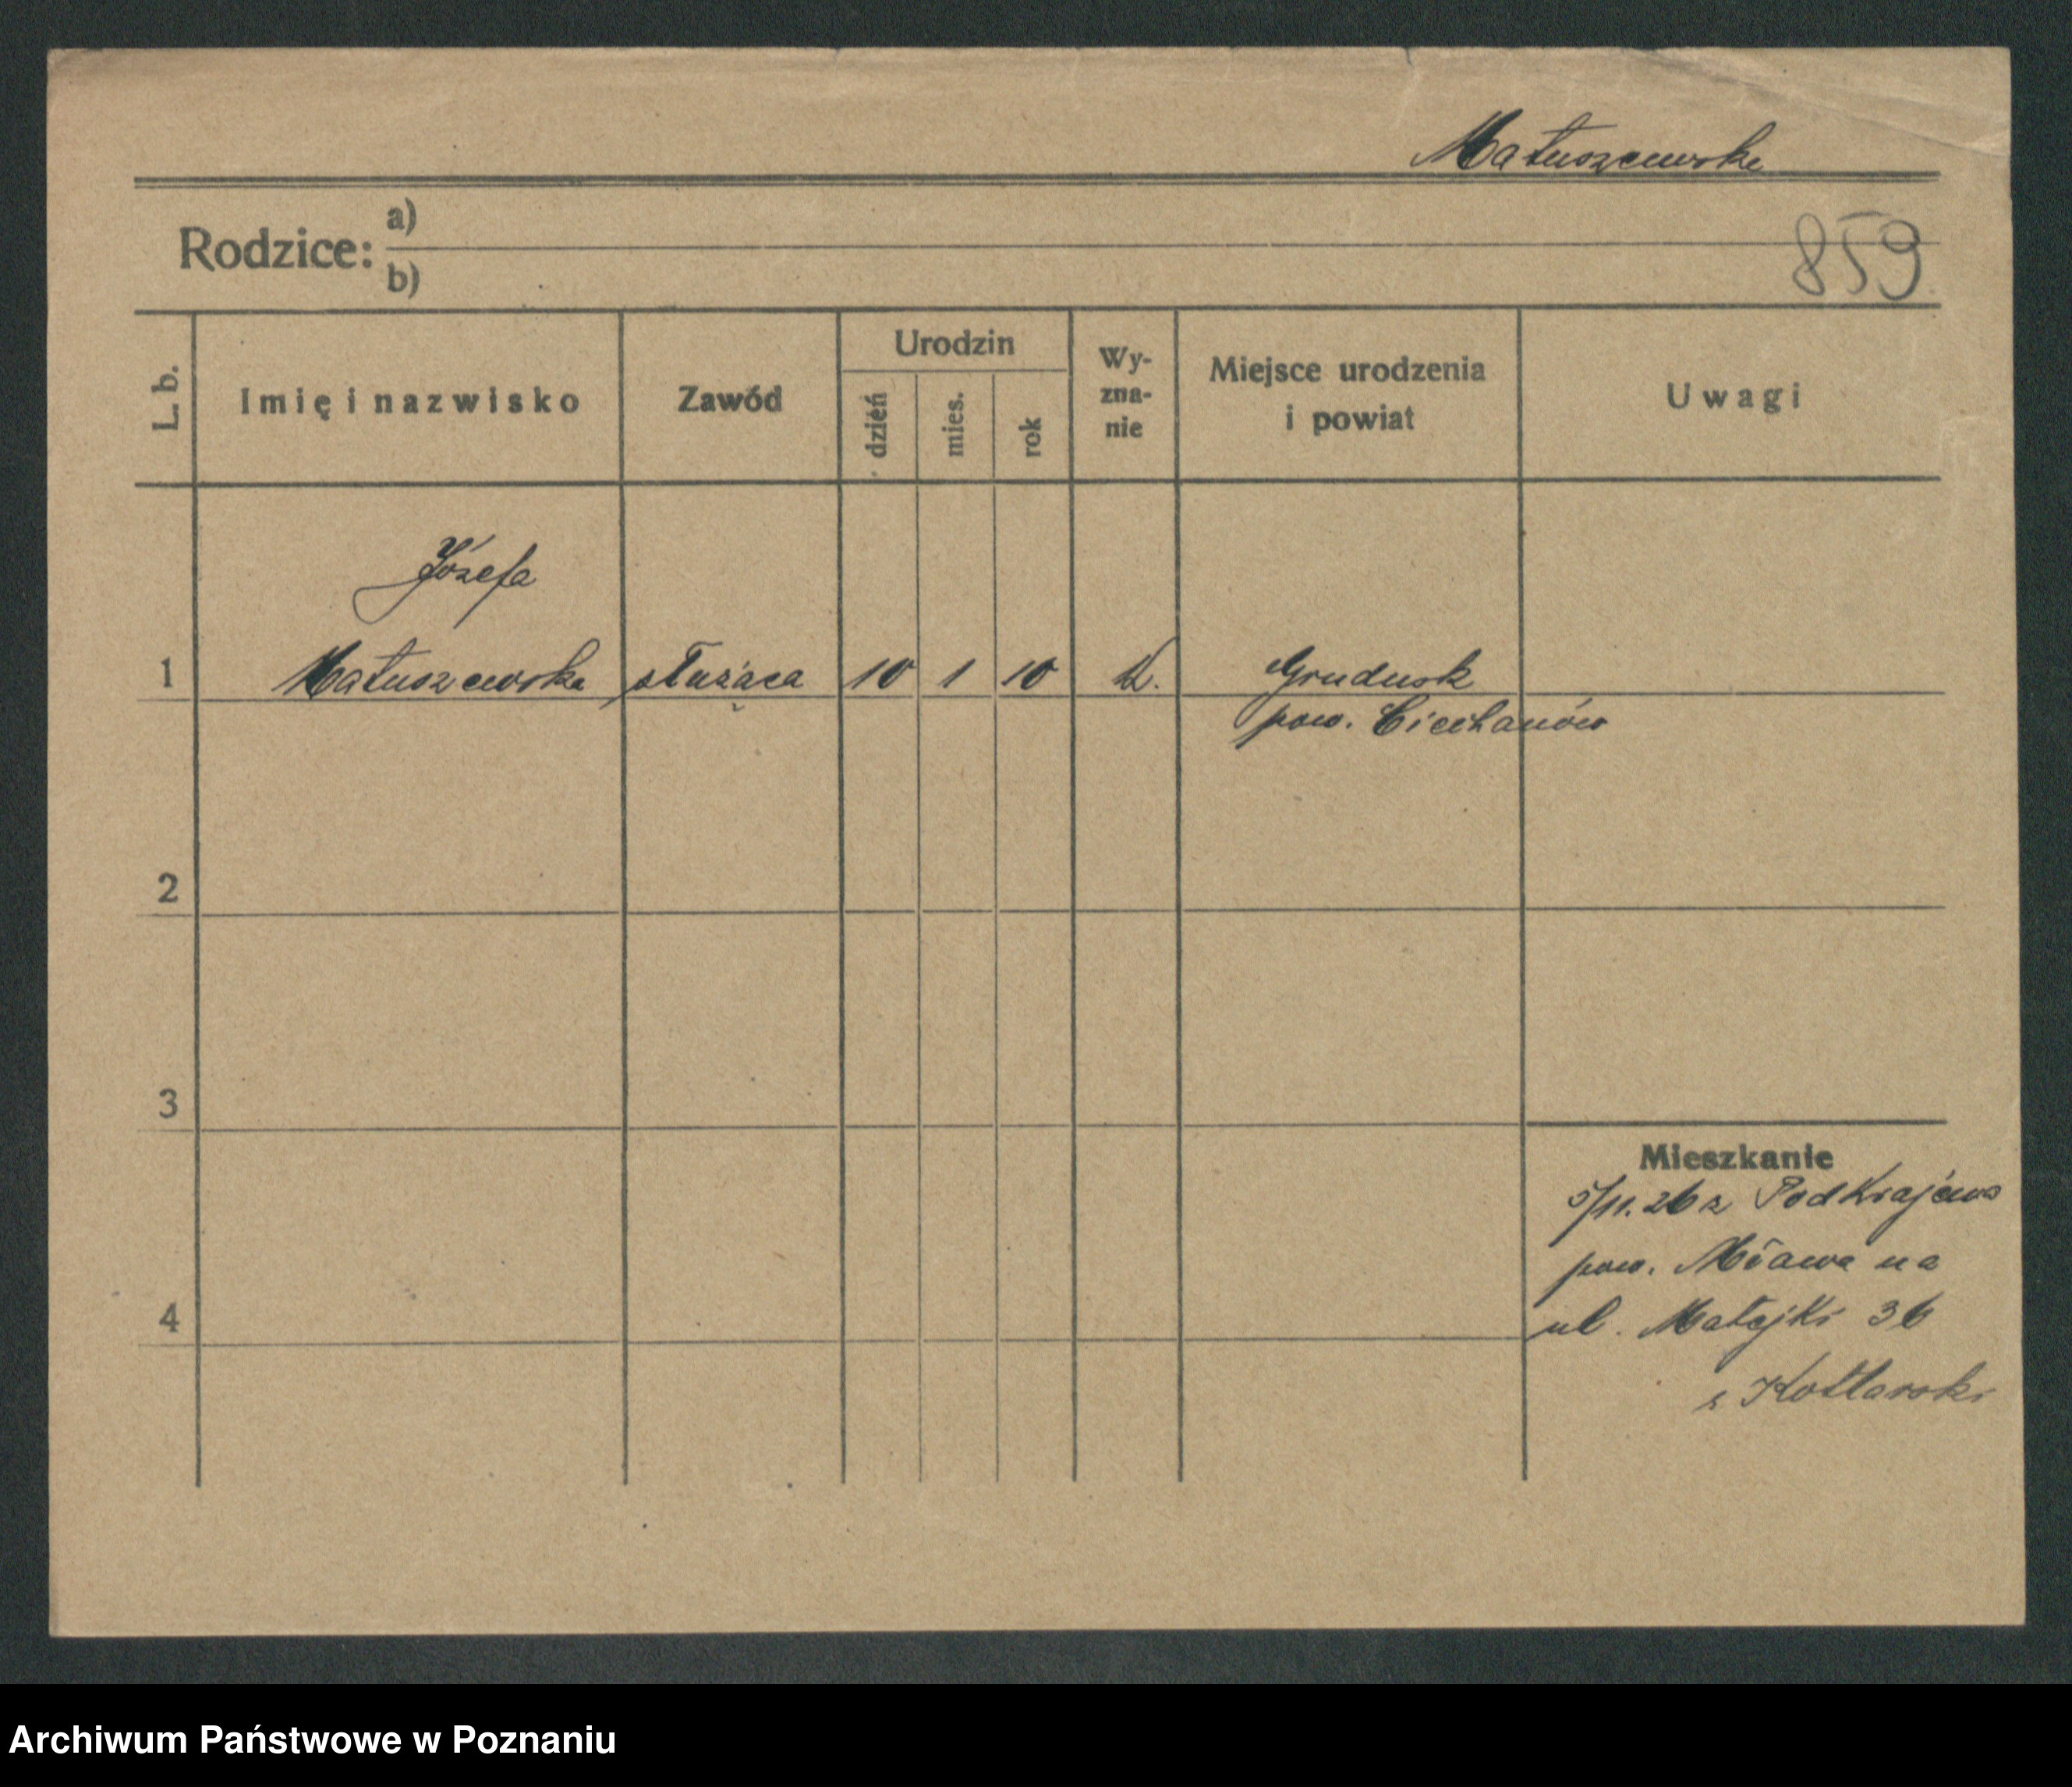 Matuszewska
Rodzice: a)
b)
859
L. b.
Imię i nazwisko
Zawód
Urodzin
dzień
mies.
rok
Wy-
zna-
nie
Miejsce urodzenia
i powiat
Uwagi
Józefa
1 Matuszewska służąca 10 1 10 K. Grudusk
pow. Ciechanów
2
3
4
Mieszkanie
5/11.26 z Podkrajewa
pow. Mława na
ul. Matejki 36
Kotlarski
Archiwum Państwowe w Poznaniu